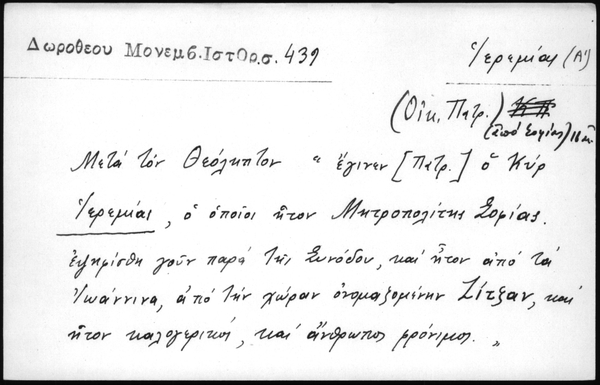 Δωροθεου Μονεμβ. Ιστ Ορ. σ. 439
Ἱερεμίας (Α')
(Οἰκ. Πατρ.)
(ἀπό Σοφίας) 16 αἰ.
Μετά τόν Θεόληπτον " ἔγινεν [Πατρ.] ὁ Κύρ
Ἱερεμίας, ὁ ὁποῖος ἦτον Μητροπολίτης Σοφίας.
ἐψηφίσθη γοῦν παρά τῆς Συνόδου, καί ἦτον ἀπό τά
Ἰωάννινα, ἀπό τήν χώραν ὀνομαζομένην Ζίτζαν, καί
ἦτον καλογερικός, καί ἄνθρωπος φρόνιμος. "